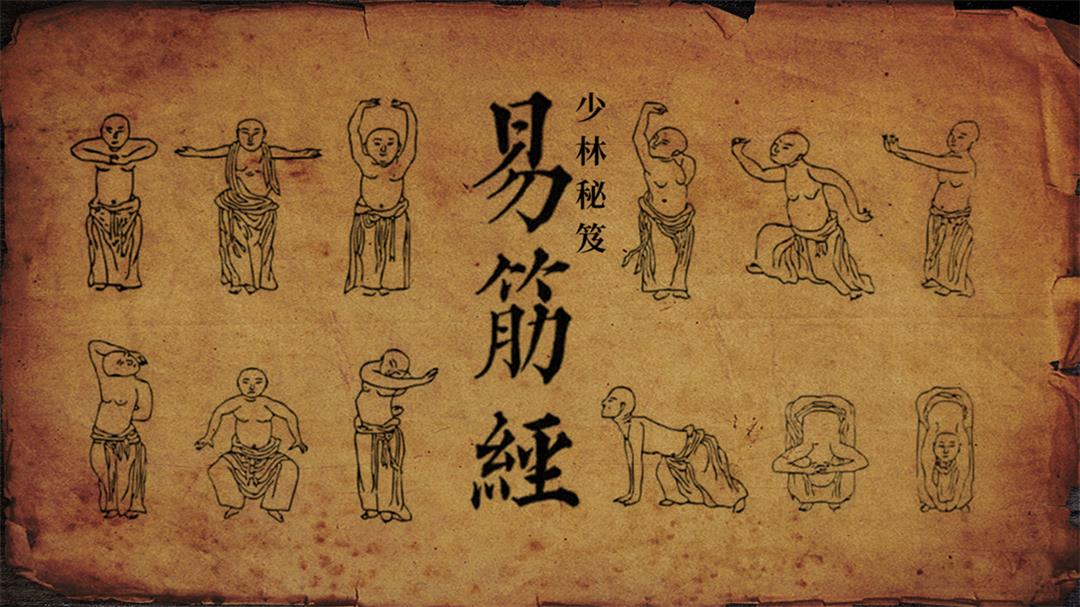 少林秘笈
易筋經